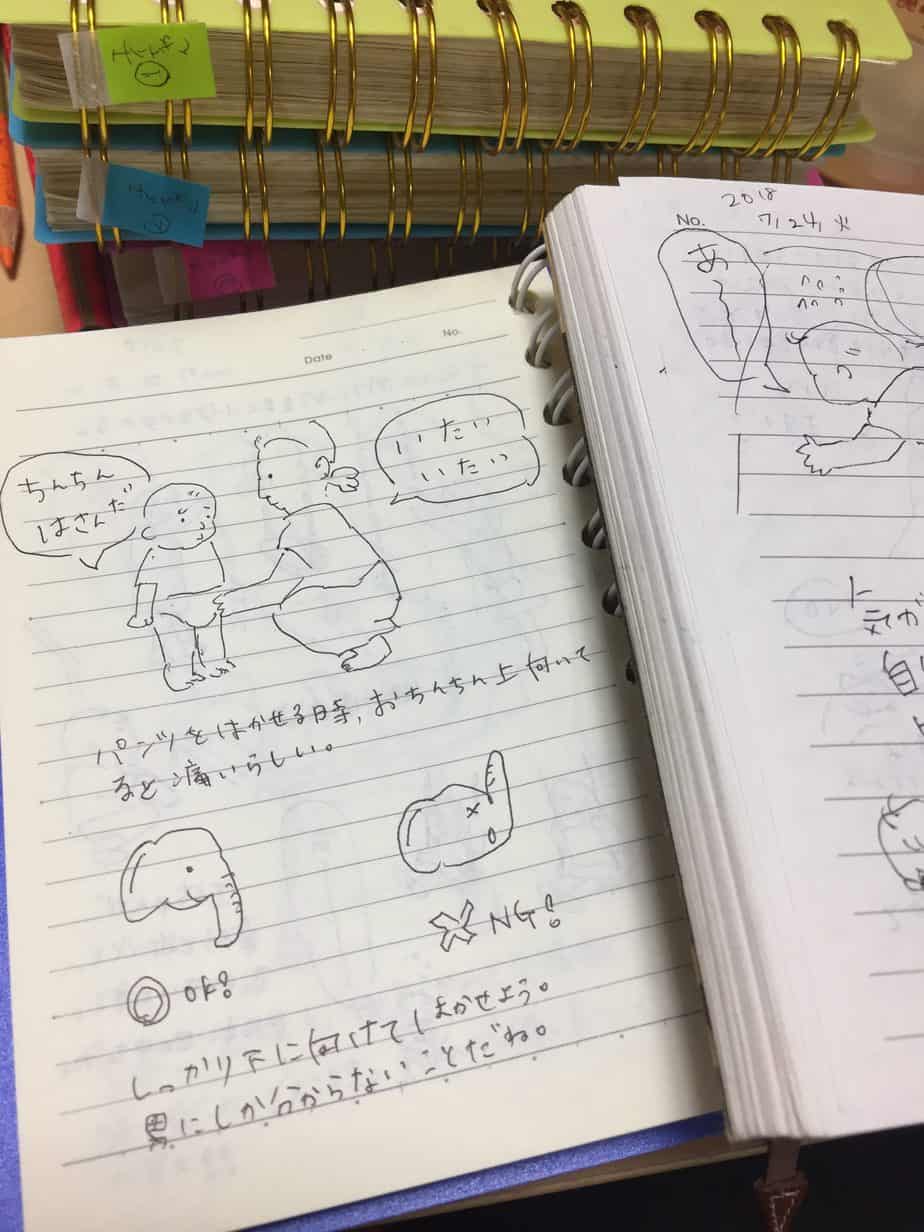 Date
No.
ちんちん
はさんだ
いたい
いたい
パンツをはかせる時,おちんちん上向いて
ると痛いらしい。
OK!
NG!
しっかり下に向けてはかせよう。
男にしか分からないことだね。
2018
No.
7,24,火
あ
に
気が
自